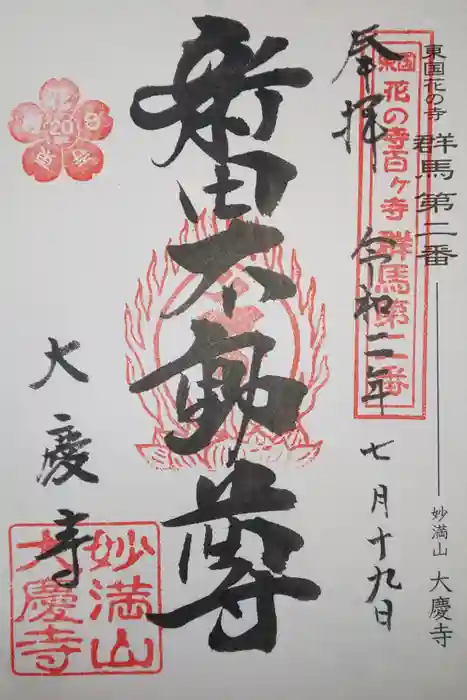 東国花の寺 群馬第二番
妙満山 大慶寺
東国花の寺百ヶ寺 群馬第二番
奉拝 令和二年 七月十九日
新田不動尊
大慶寺
妙満山
大慶寺
20